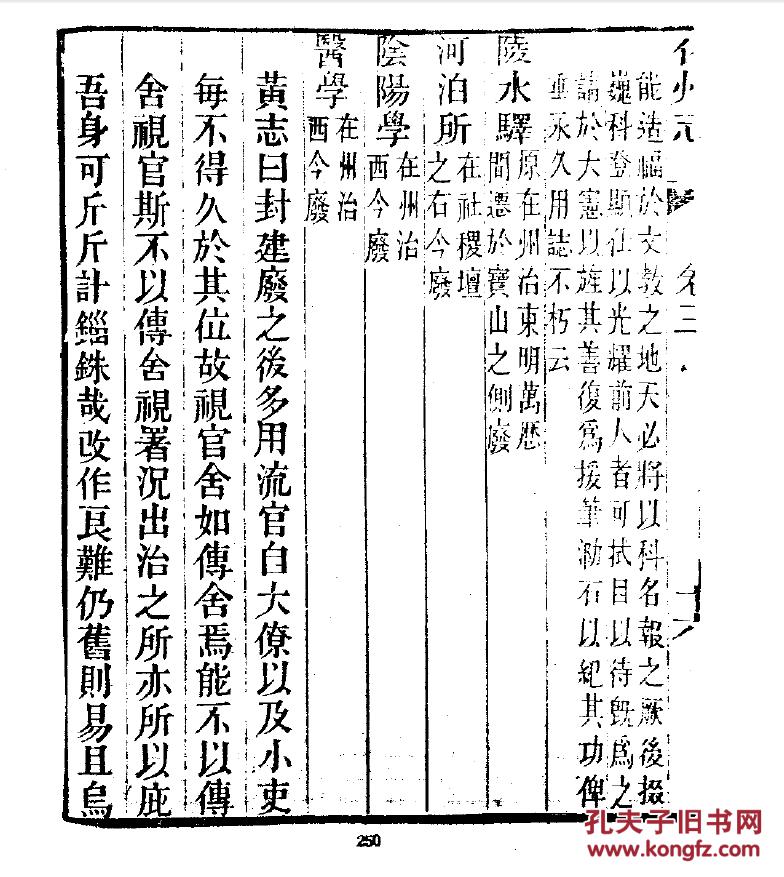 化州志
卷三
十六
能造福於文教之地天必將以科名報之厥後掇
巍科登顯仕以光耀前人者可拭目以待旣爲之
請於大憲以旌其善復爲援筆泐石以紀其功俾
垂永久用誌不朽云
陵水驛
原在州治東明萬厯
間遷於寶山之側廢
河泊所
在社稷壇
之右今廢
陰陽學
在州治
西今廢
醫學
在州治
西今廢
黃志曰封建廢之後多用流官自大僚以及小吏
每不得久於其位故視官舍如傳舍焉能不以傳
舍視官斯不以傳舍視署況出治之所亦所以庇
吾身可斤斤計錙銖哉改作良難仍舊則易且烏
250
孔夫子旧书网
www.kongfz.com